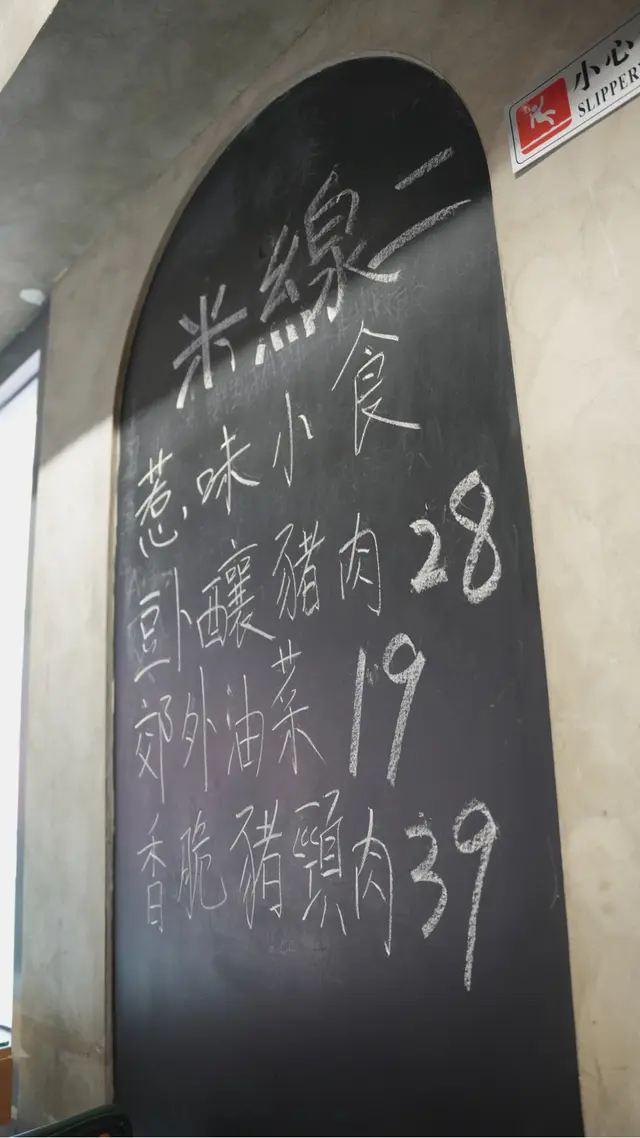 小心
SLIPPER
米線二
惹味小食
豆卜釀豬肉 28
郊外油菜 19
香脆豬頸肉 39